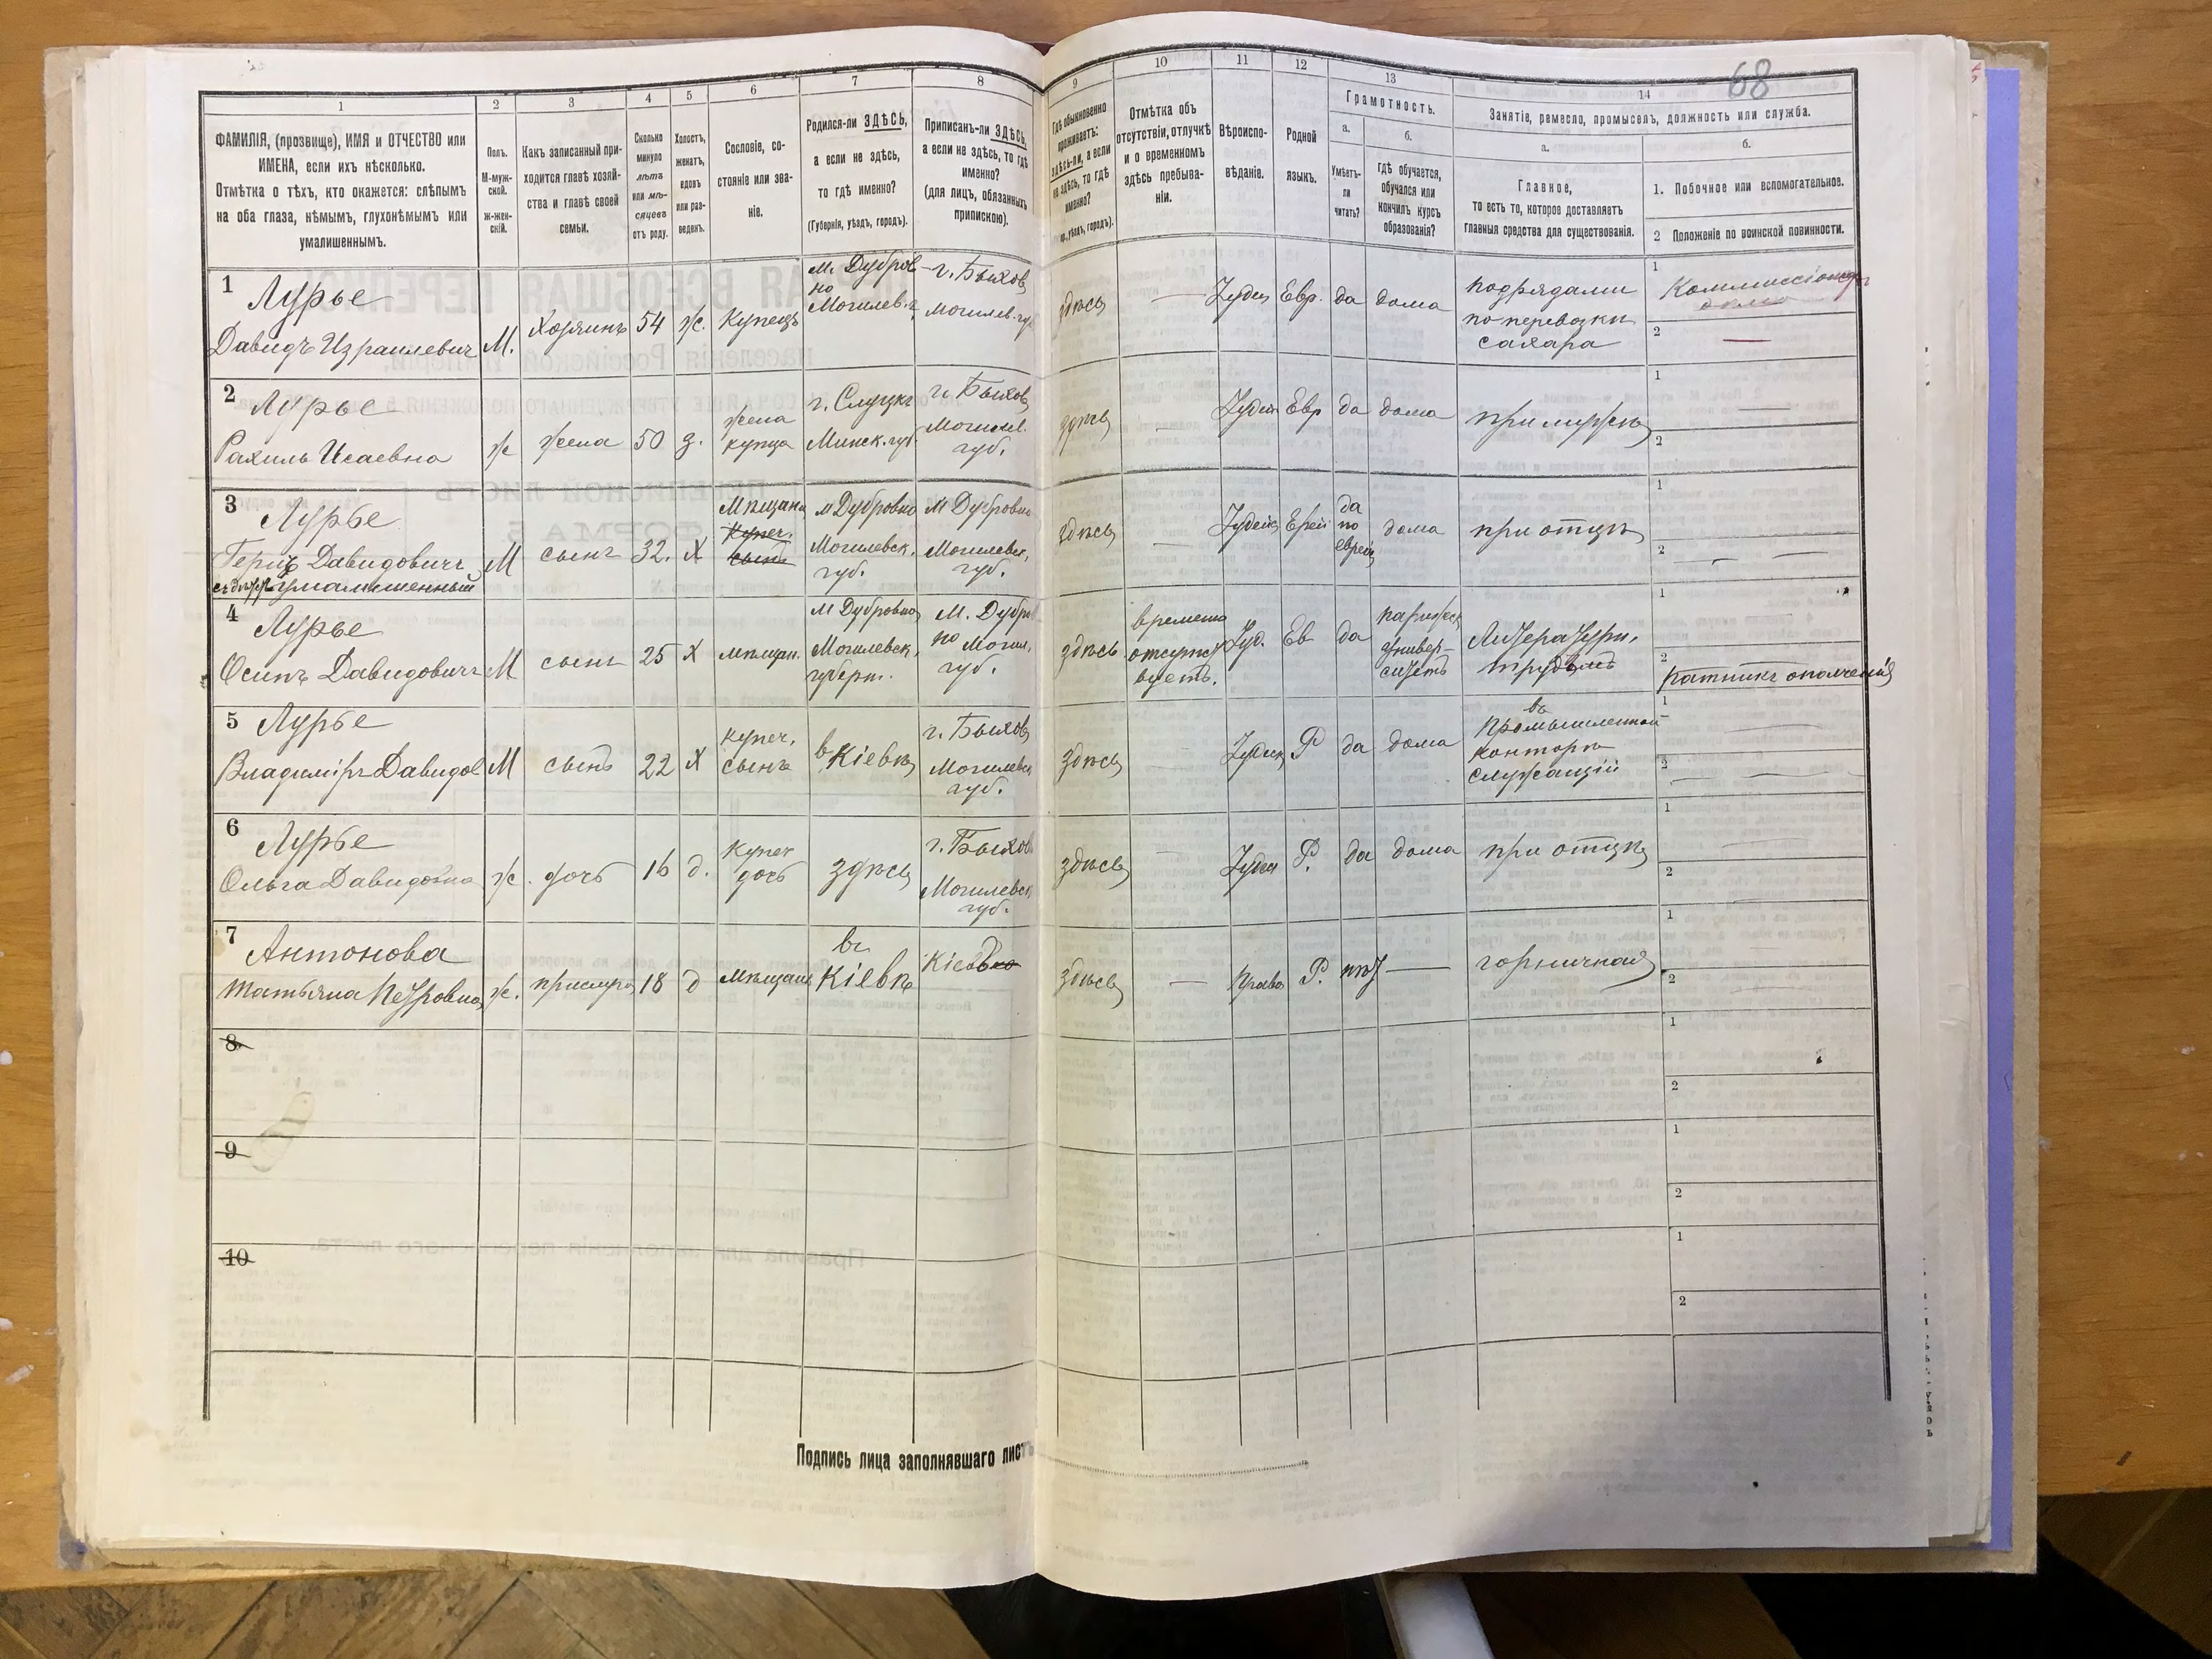 68
1 2 3 4 5 6 7 8 9 10 11 12 13 14
ФАМИЛІЯ, (прозвище), ИМЯ и ОТЧЕСТВО или
ИМЕНА, если ихъ нѣсколько.
Отмѣтка о тѣхъ, кто окажется: слѣпымъ
на оба глаза, нѣмымъ, глухонѣмымъ или
умалишеннымъ.
Полъ.
М-муж-
ской.
ж-жен-
скій.
Какъ записанный при-
ходится главѣ хозяй-
ства и главѣ своей
семьи.
Сколько
минуло
лѣтъ
или мѣ-
сяцевъ
отъ роду.
Холостъ,
женатъ,
вдовъ
или раз-
веденъ.
Сословіе, со-
стояніе или зва-
ніе.
Родился-ли ЗДѢСЬ,
а если не здѣсь,
то гдѣ именно?
(Губернія, уѣздъ, городъ).
Приписанъ-ли ЗДѢСЬ,
а если не здѣсь, то гдѣ
именно?
(для лицъ, обязанныхъ
припискою).
Гдѣ обыкновенно
проживаетъ:
здѣсь-ли, а если
не здѣсь, то гдѣ
именно?
уѣздъ, городъ).
Отмѣтка объ
отсутствіи, отлучкѣ
и о временномъ
здѣсь пребыва-
ніи.
Вѣроиспо-
вѣданіе.
Родной
языкъ.
Грамотность.
а.
Умѣетъ-
ли
читать?
б.
гдѣ обучается,
обучался или
кончилъ курсъ
образованія?
Занятіе, ремесло, промыселъ, должность или служба.
а.
Главное,
то есть то, которое доставляетъ
главныя средства для существованія.
б.
1. Побочное или вспомогательное.
2 Положеніе по воинской повинности.
1 Лурье
Давидъ Израилевич
М.
Хозяинъ
54
ж.
Купецъ
м. Дубров
но
Могилев. г
г. Быхов
Могилев. гу
здѣсь
—
Іудей
Евр.
да
дома
подрядами
по перевозки
сахара
1
Коммиссіонер
2
—
2 Лурье
Рахиль Исаевна
ж
жена
50
з.
жена
купца
г. Слуцкъ
Минск. губ.
г. Быхов
Могилев.
губ.
здѣсь
—
Іудей
Евр
да
дома
при мужѣ
1
—
2
3 Лурье
Герцъ Давидовичъ
умалишенный
М
сынъ
32.
Х
Мѣщани
Купеч.
сынъ
м Дубровно
Могилевск.
губ.
м Дубровно
Могилевск.
губ.
здѣсь
—
Іудей
Еврей
да
по
еврей
дома
при отцѣ
1
2
—
4 Лурье
Осипъ Давидовичъ
М
сынъ
25
Х
мѣщан.
м Дубровно
Могилевск.
губерн.
м. Дубров
но Могил.
губ.
здѣсь
временно
отсутст
вуетъ.
Іуд.
Ев
да
париж
универ-
ситетъ
Литератури.
трудомъ
1
—
2
ратникъ ополченія
5 Лурье
Владиміръ Давидов
М
сынъ
22
Х
купеч.
сынъ
в Кіевѣ
г. Быхов
Могилевск
губ.
здѣсь
—
Іудей
Р
да
дома
въ
промышленной
конторѣ
служащій
1
—
2
—
6 Лурье
Ольга Давидовна
ж.
дочь
16
д.
купеч
дочь
здѣсь
г. Быхов
Могилевск
губ.
здѣсь
—
Іудей
Р.
да
дома
при отцѣ
1
—
2
7 Антонова
Татьяна Петровна
ж.
прислуга
18
д
Мѣщан
въ
Кіевѣ
здѣсь
—
Право
Р.
нѣт
—
горничная
1
—
2
8
1
2
9
1
2
10
1
2
Подпись лица заполнявшаго листъ